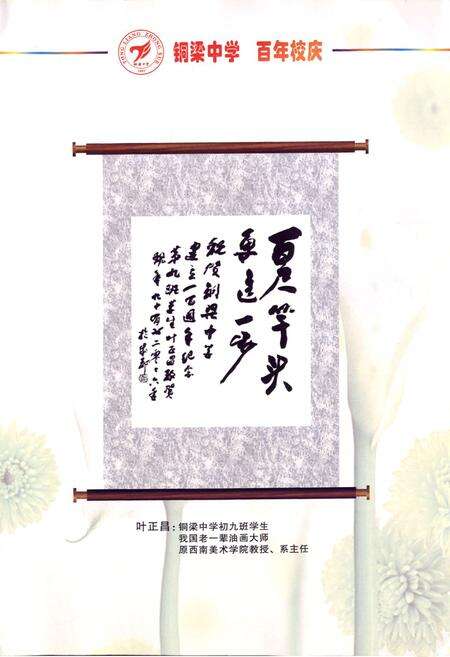 TONG LIANG ZHONG XUE
铜梁中学 百年校庆
百尺竿头
更进一步
祝贺铜梁中学
建立一百周年纪念
第九班学生叶正昌敬贺
叶正昌：铜梁中学初九班学生
我国老一辈油画大师
原西南美术学院教授、系主任